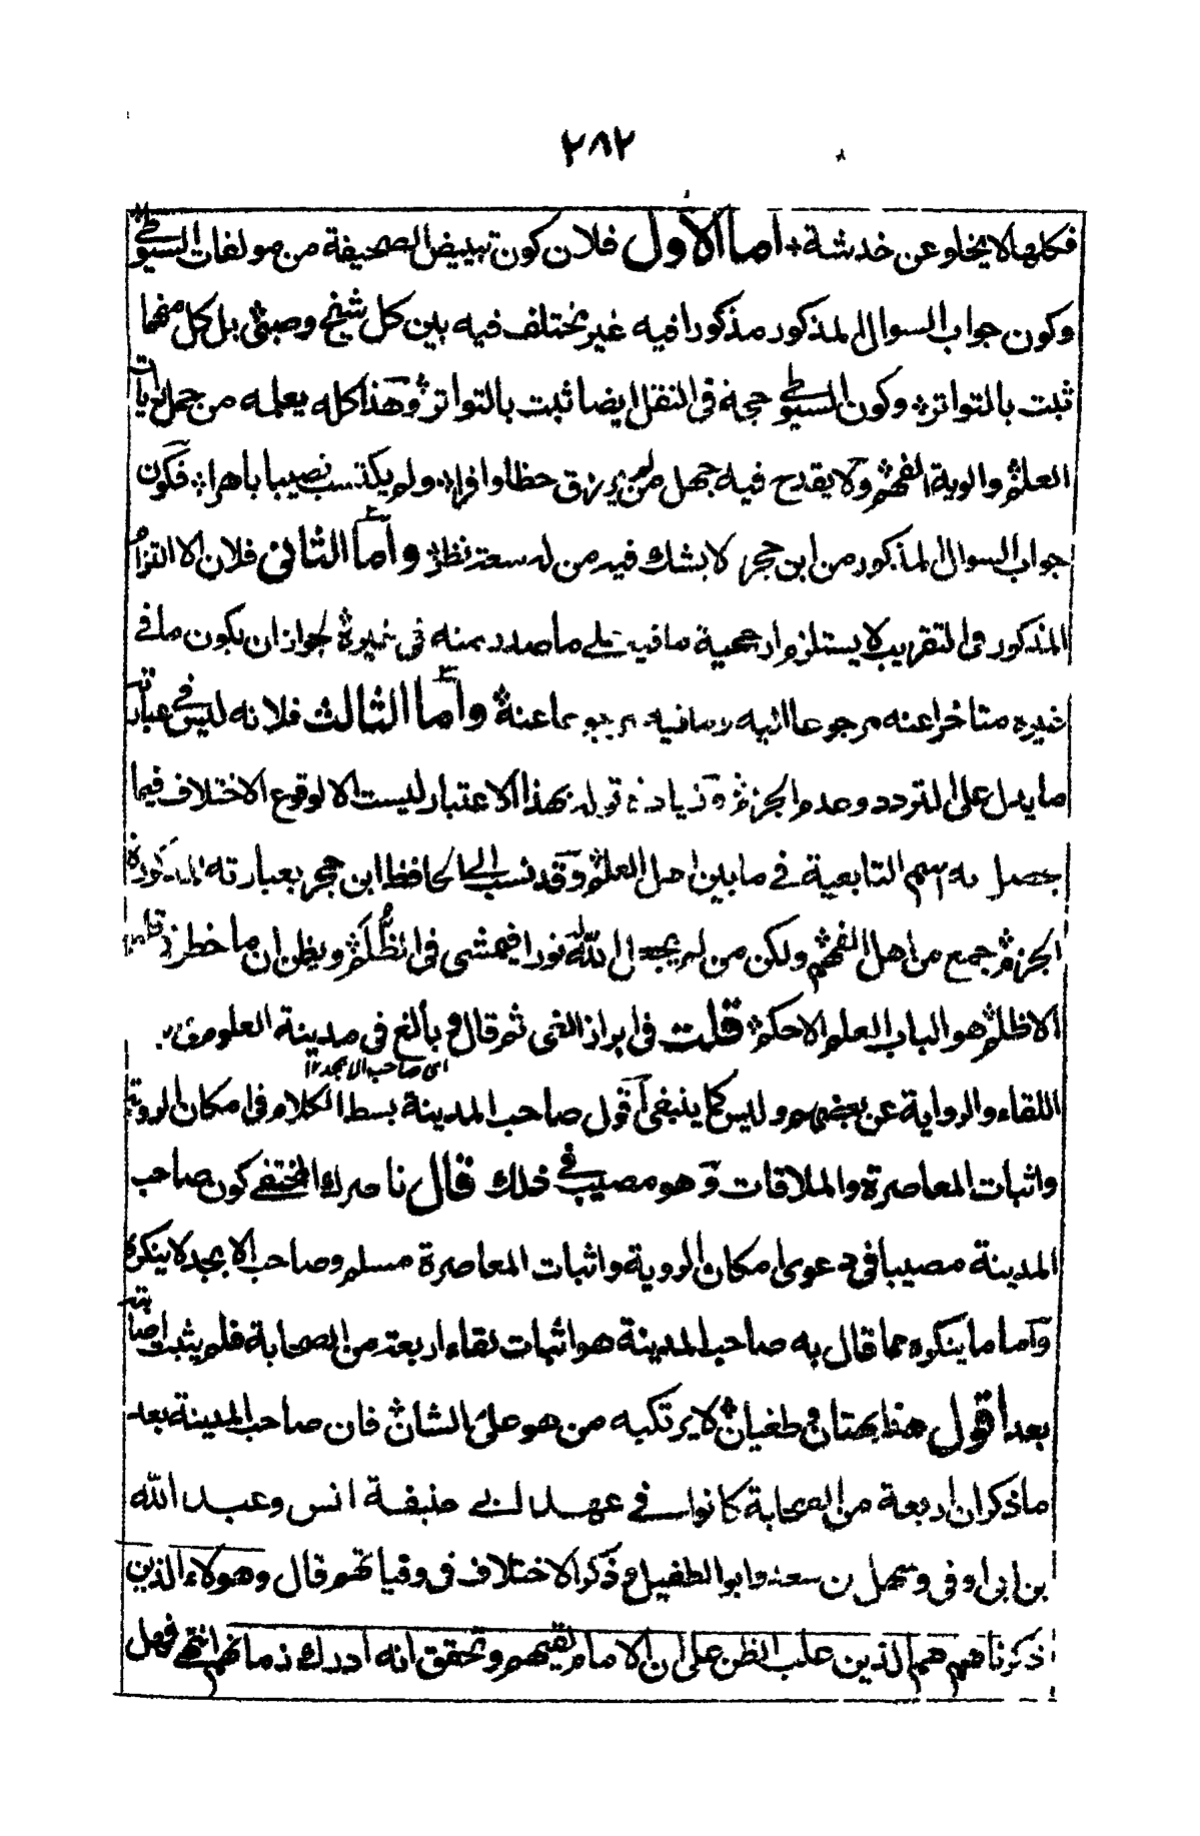 ٢٨٢
فكلها لا يخلو عن خدشة أما الأول فلان كون تبييض الصحيفة من مولفات السيوطي
وكون جواب السوال المذكور مذكورا فيه غير مختلف فيه بين كل شيخ وصبي بل كل منهما
ثبت بالتواتر وكون السيوطي حجة في النقل ايضا ثبت بالتواتر وهذا كله يعلمه من حمل رايات
العلم والوية الفهم ولا يقدح فيه جهل من لم يرزق حظا وافرا ولم يكتسب نصيبا باهرا فكون
جواب السوال المذكور من ابن حجر لا يشك فيه من له سعة نظر وأما الثاني فلان الالتزام
المذكور في التقريب لا يستلزم ارجحية ما فيه على ما صدر منه في غيره لجواز ان يكون ما في
غيره متاخرا عنه مرجوعا اليه وما فيه مرجوعا عنه وأما الثالث فلانه ليس في عبارته
ما يدل على التردد وعدم الجزم وزيادة قوله بهذا الاعتبار ليست الا لوقوع الاختلاف فيما
يحصل به اسم التابعية في ما بين اهل العلم وقد نسب الى الحافظ ابن حجر بعبارته المذكورة
الجزم جمع من اهل الفهم ولكن من لم يجعل الله له نورا فيمشي في الظلم ويظن ان ما خطر
الاظلم هو الباب العلم الاحكم قلت في ابراز الغي ثم قال وبالغ في مدينة العلوم في
اى صاحب الابجد ١٢
اللقاء والرواية عن بعضهم وليس كما ينبغي أقول صاحب المدينة بسط الكلام في امكان الروية
واثبات المعاصرة والملاقات وهو مصيب في ذلك قال ناصرك المختفي كون صاحب
المدينة مصيبا في دعوى امكان الروية واثبات المعاصرة مسلم وصاحب الابجد لا ينكره
وأما ما ينكره مما قال به صاحب المدينة هو اثبات لقاء اربعة من الصحابة فلم يثبت اصابته
بعد أقول هذا بهتان وطغيان لا يرتكبه من هو علي الشان فان صاحب المدينة بعد
ما ذكر ان اربعة من الصحابة كانوا في عهد ابي حنيفة انس وعبد الله
بن ابي اوفى وسهل بن سعد وابو الطفيل وذكر الاختلاف في وفياتهم قال وهولاء الذين
ذكرناهم هم الذين غلب الظن على ان الامام لقيهم وتحقق انه ادرك زمانهم انتهى فهل